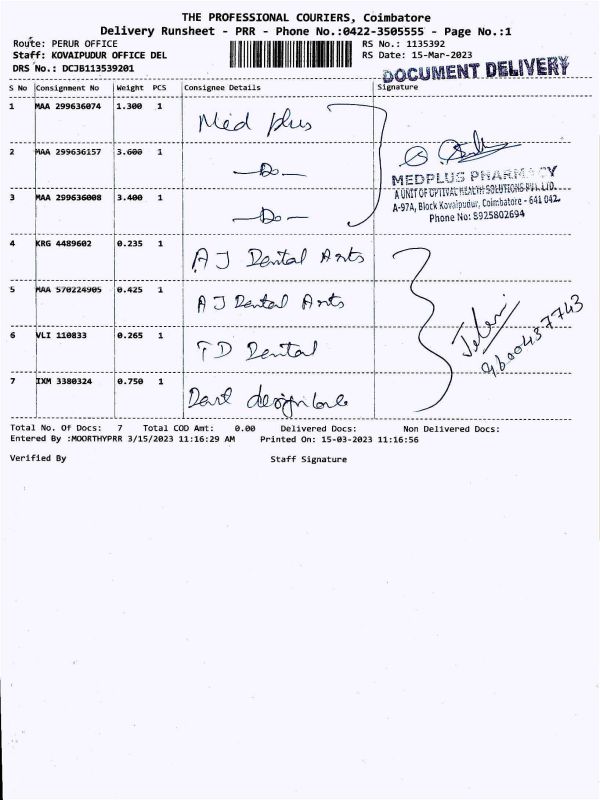 THE PROFESSIONAL COURIERS, Coimbatore
Delivery Runsheet - PRR - Phone No.:0422-3505555 - Page No.:1
Route: PERUR OFFICE
RS No.: 1135392
Staff: KOVAIPUDUR OFFICE DEL
RS Date: 15-Mar-2023
DRS No.: DCJB113539201
DOCUMENT DELIVERY
S No Consignment No Weight PCS Consignee Details Signature
1 MAA 299636074 1.300 1 Med plus
2 MAA 299636157 3.600 1 —Do—
MEDPLUS PHARMACY
A UNIT OF OPTIVAL HEALTH SOLUTIONS PVT. LTD.
A-97A, Block Kovaipudur, Coimbatore - 641 042.
Phone No: 8925802694
3 MAA 299636008 3.400 1 —Do—
4 KRG 4489602 0.235 1 A J Dental Arts
5 MAA 570224905 0.425 1 A J Dental Arts
9600437743
6 VLI 110833 0.265 1 T D Dental
7 IXM 3380324 0.750 1
Total No. Of Docs: 7 Total COD Amt: 0.00 Delivered Docs: Non Delivered Docs:
Entered By :MOORTHYPRR 3/15/2023 11:16:29 AM Printed On: 15-03-2023 11:16:56
Verified By Staff Signature